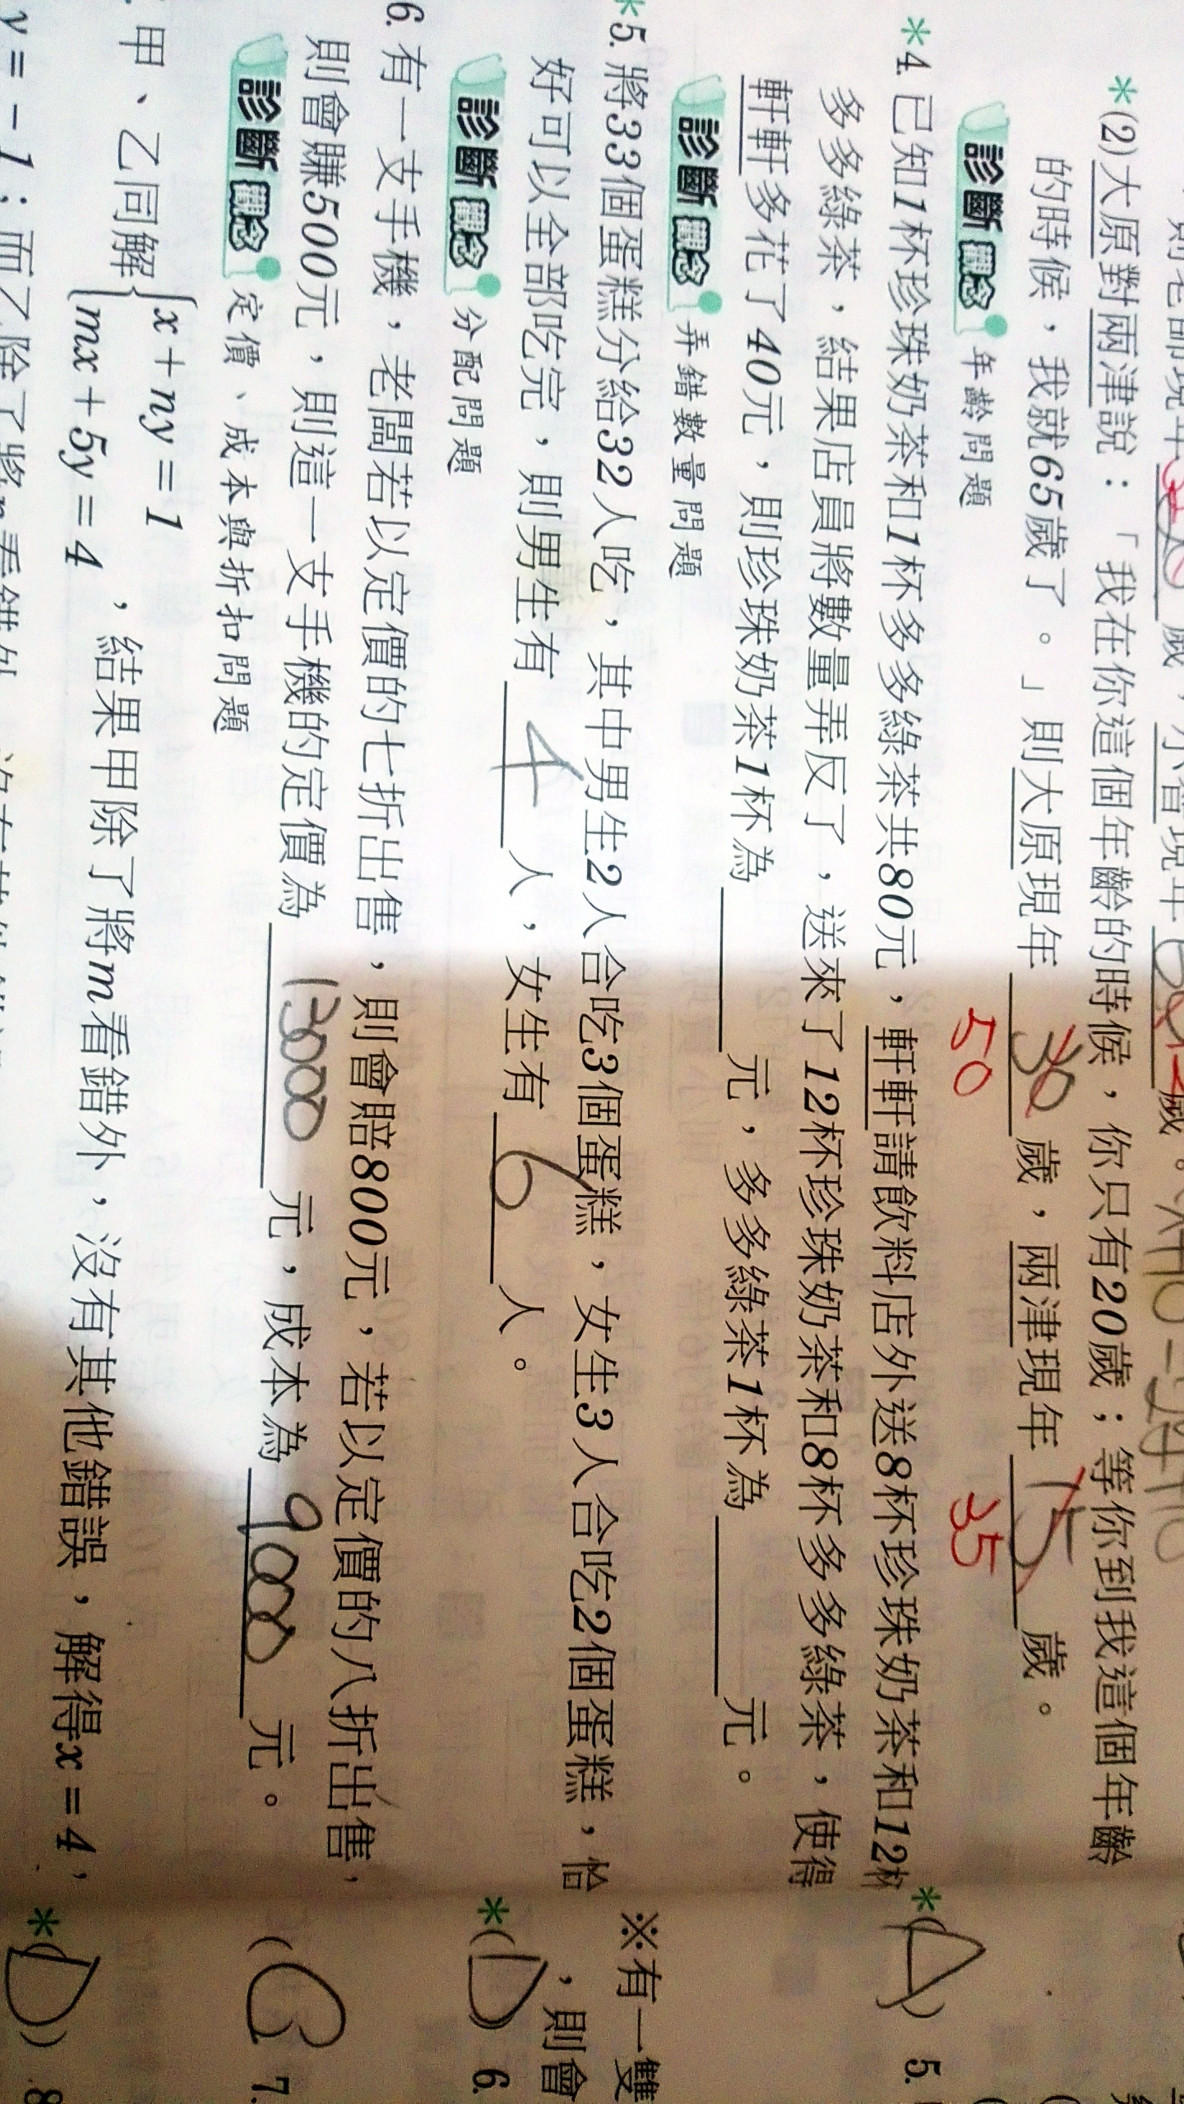 *(2)大原對兩津說：「我在你這個年齡的時候，你只有20歲；等你到我這個年齡
的時候，我就65歲了。」則大原現年 30 歲，兩津現年 15 歲。
50 35
診斷觀念 年齡問題
*4. 已知1杯珍珠奶茶和1杯多多綠茶共80元，軒軒請飲料店外送8杯珍珠奶茶和12杯
多多綠茶，結果店員將數量弄反了，送來了12杯珍珠奶茶和8杯多多綠茶，使得
軒軒多花了40元，則珍珠奶茶1杯為 元，多多綠茶1杯為 元。
診斷觀念 弄錯數量問題
*5. 將33個蛋糕分給32人吃，其中男生2人合吃3個蛋糕，女生3人合吃2個蛋糕，恰
好可以全部吃完，則男生有 4 人，女生有 6 人。
診斷觀念 分配問題
6. 有一支手機，老闆若以定價的七折出售，則會賠800元，若以定價的八折出售，
則會賺500元，則這一支手機的定價為 13000 元，成本為 9000 元。
診斷觀念 定價、成本與折扣問題
甲、乙同解{x+ny=1
mx+5y=4 ，結果甲除了將m看錯外，沒有其他錯誤，解得x=4，
y=-1；而乙除了將n看錯外
*(A) 5.
※有一雙
，則會
*(D) 6.
(C) 7.
*(D) 8